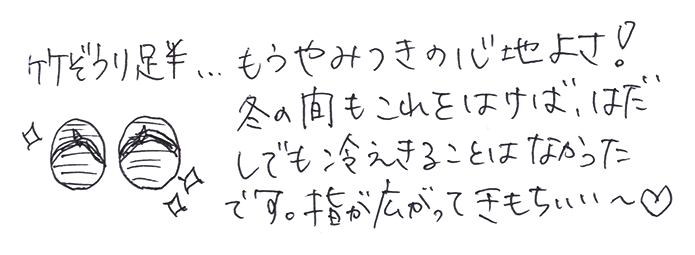 竹ぞうり足半… もうやみつきの心地よさ!
冬の間もこれをはけば、はだ
しでも冷えきることはなかった
です。指が広がってきもちいい〜♡